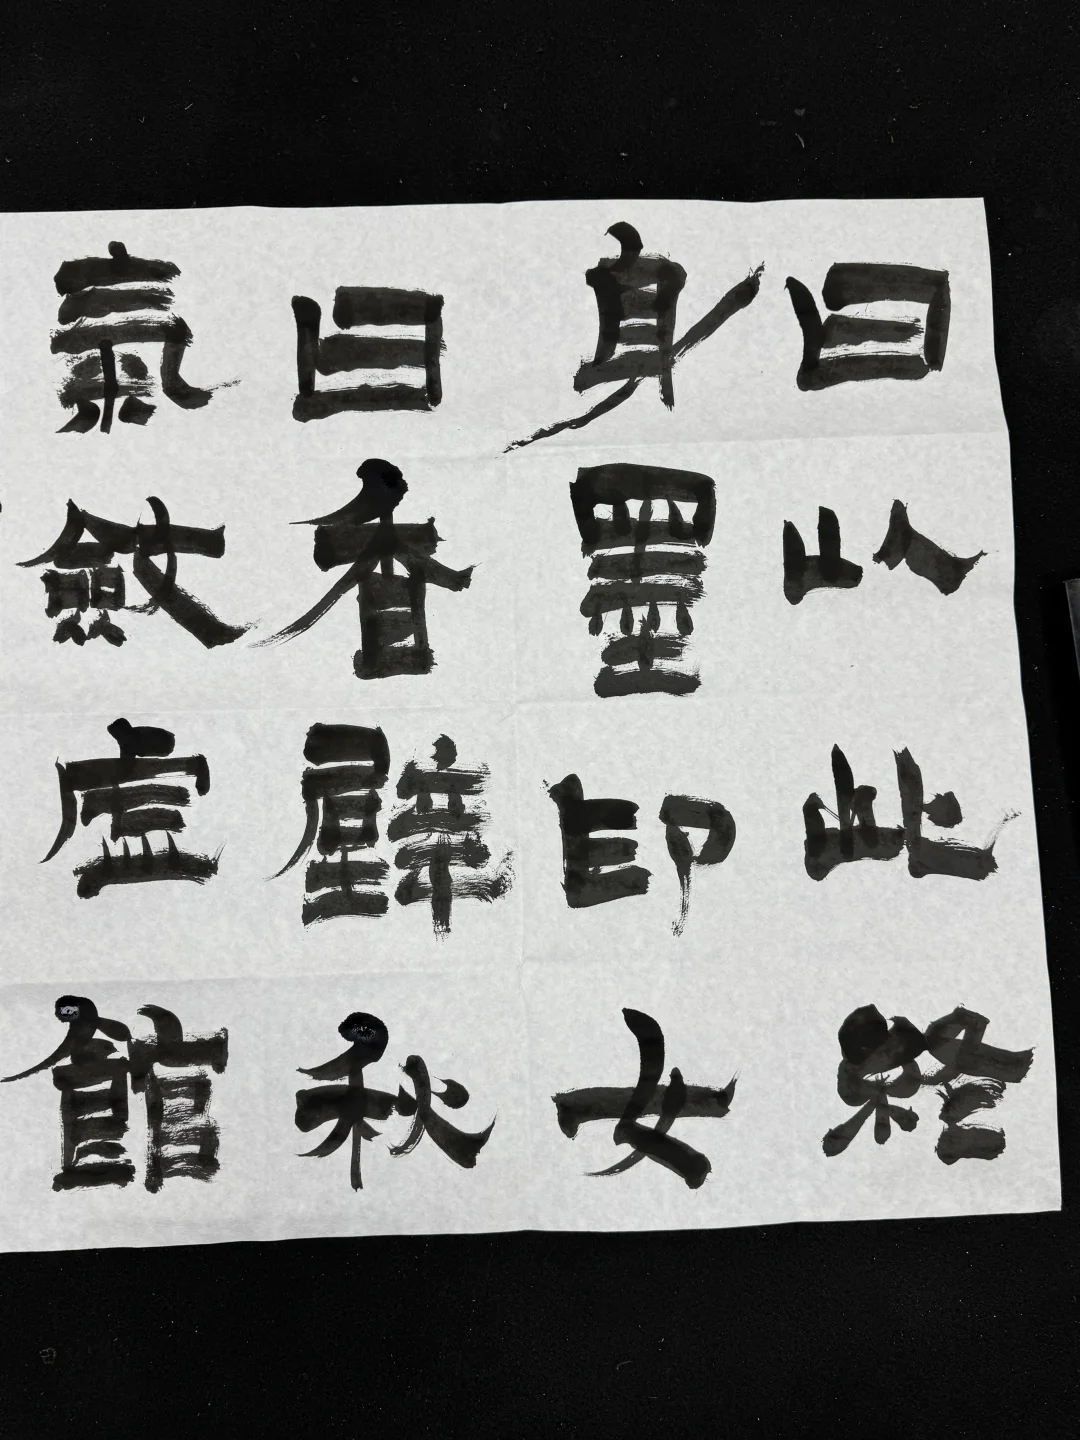 曰以此終
身墨印女
曰香壁秋
氣斂虛館